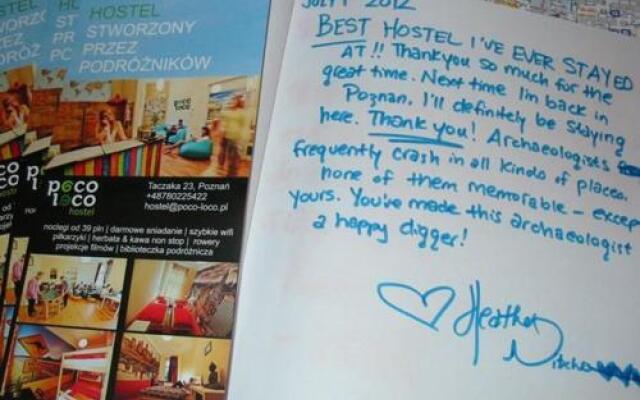 HOSTEL
STWORZONY
PRZEZ
PODRÓŻNIKÓW
poco
loco
hostel
Taczaka 23, Poznań
+48780225422
hostel@poco-loco.pl
noclegi od 39 pln | darmowe śniadanie | szybkie wifi
piłkarzyki | herbata & kawa non stop | rowery
projekcje filmów | biblioteczka podróżnicza
2012
BEST HOSTEL I'VE EVER STAYED
AT!! Thank you so much for the
great time. Next time I'm back in
Poznan, I'll definitely be staying
here. Thank you! Archaeologists
frequently crash in all kinds of places.
None of them memorable – excep
yours. You've made this archaeologist
a happy digger!
Heather